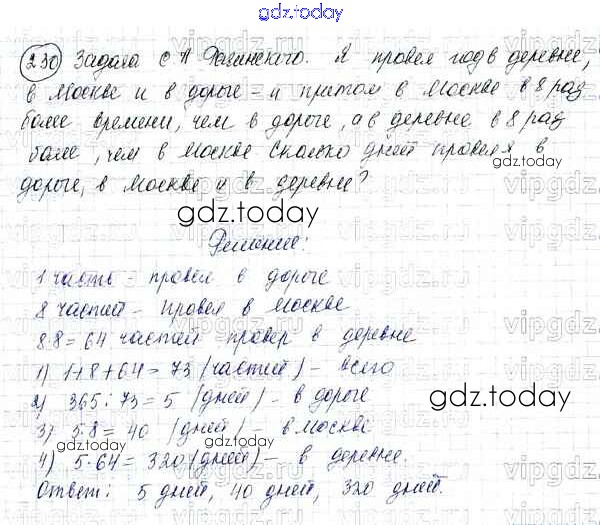 gdz.today
230 Задача С А Рачинского. Я провел год в деревне,
в Москве и в дороге – и притом в Москве в 8 раз
более времени, чем в дороге, а в деревне в 8 раз
более, чем в Москве Сколько дней провел я в
дороге, в Москве и в деревне?
gdz.today
gdz.today
Решение:
1 часть – провел в дороге
8 частей – провел в Москве
8·8=64 частей провел в деревне
1) 1+8+64=73 (частей) – всего
2) 365:73=5 (дней) – в дороге
gdz.today
3) 5·8=40 (дней) – в Москве
gdz.today
4) 5·64=320 (дней) – в деревне.
Ответ: 5 дней, 40 дней, 320 дней.